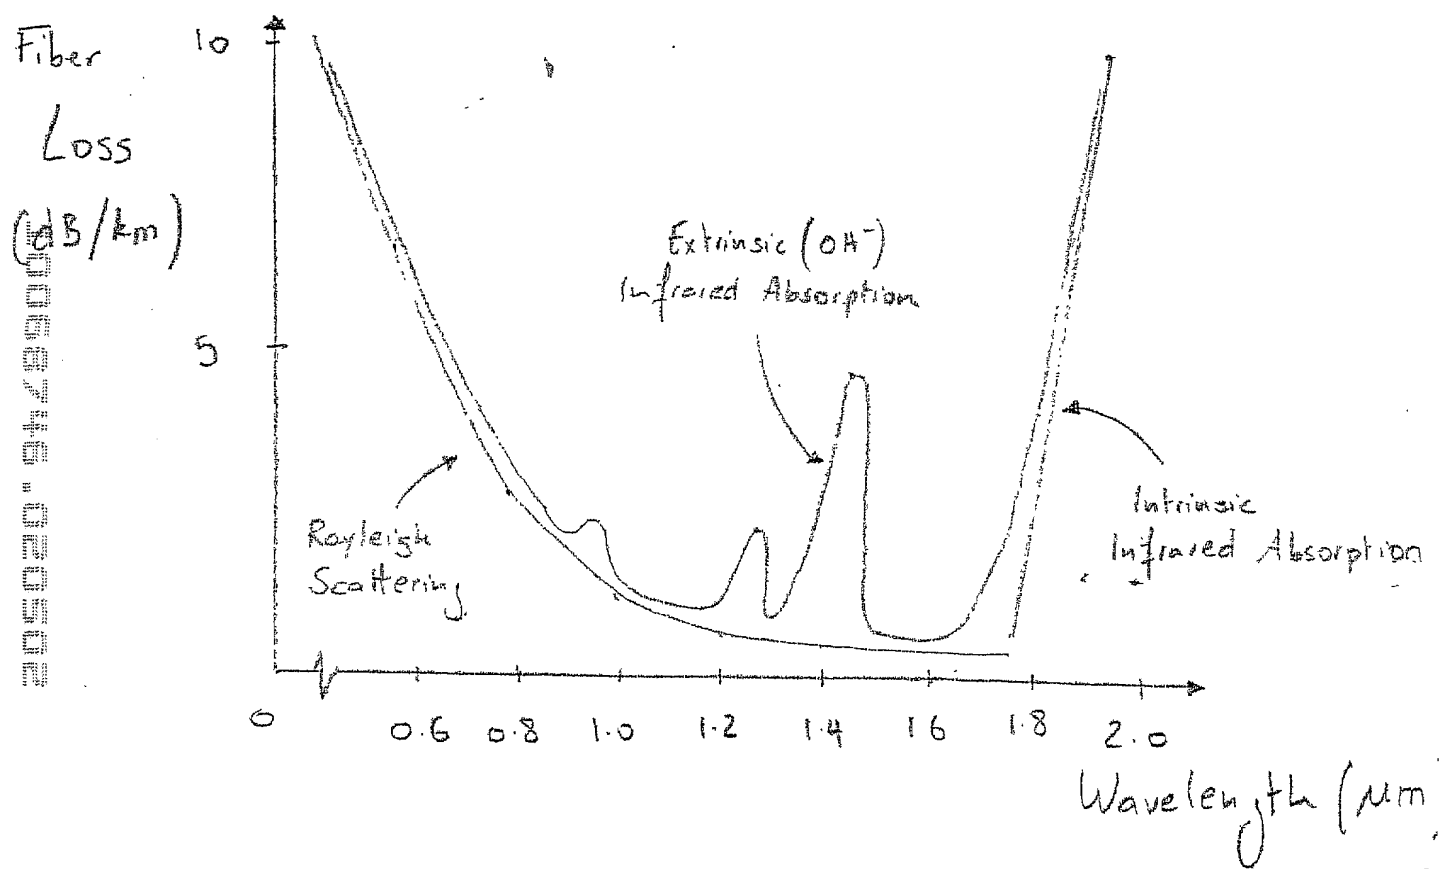 Fiber
Loss
(dB/km)
10
5
Extrinsic (OH⁻)
Infrared Absorption
Rayleigh
Scattering
Intrinsic
Infrared Absorption
0 0.6 0.8 1.0 1.2 1.4 1.6 1.8 2.0
Wavelength (μm